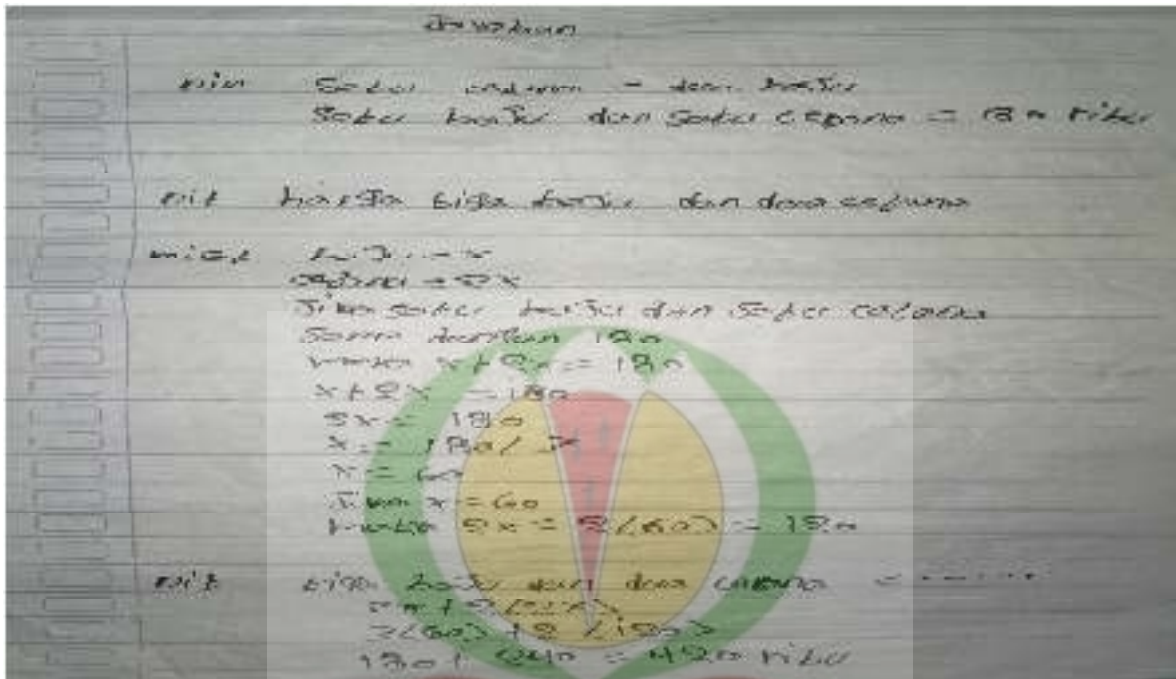 Jawaban
Satu celana = dua baju
Satu baju dan satu celana = 180 ribu
harga tiga baju dan dua celana
misal baju = x
celana = 2x
Jika satu baju dan satu celana
Sama dengan 180
maka x + 2x = 180
x + 2x = 180
3x = 180
x = 180 / 3
x = 60
Jika x = 60
maka 2x = 2(60) = 120
tiga baju dan dua celana = ......
3x + 2(2x)
3(60) + 2(120)
180 + 240 = 420 ribu